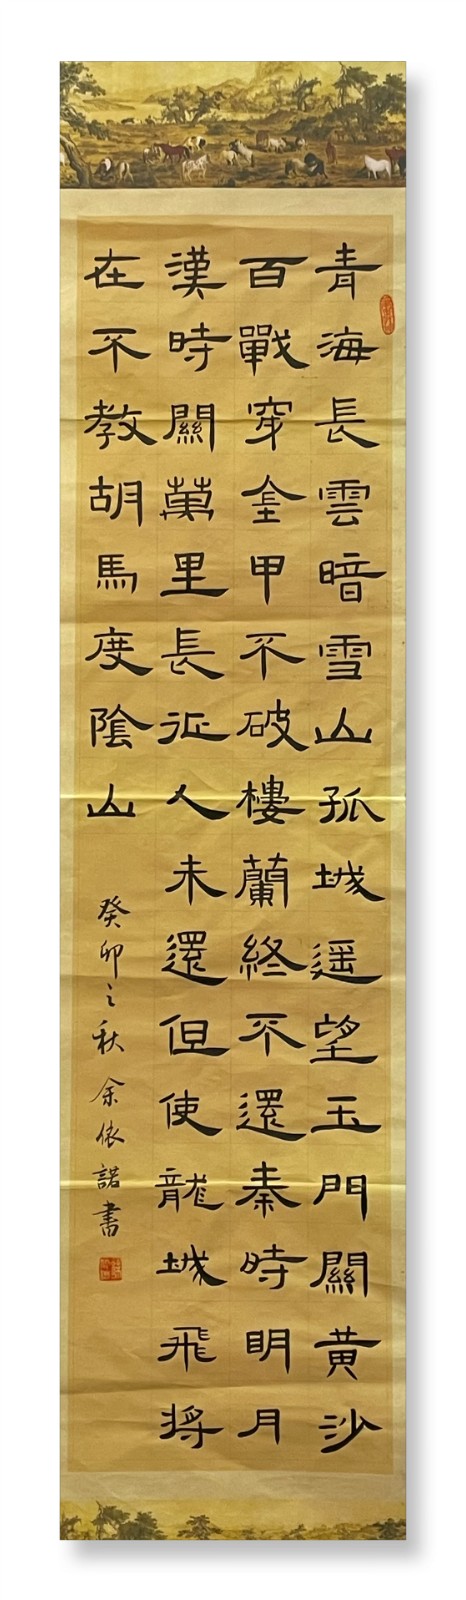 青海長雲暗雪山孤城遥望玉門關黄沙
百戰穿金甲不破樓蘭終不還秦時明月
漢時關萬里長征人未還但使龍城飛將
在不教胡馬度陰山
癸卯之秋余依諾書